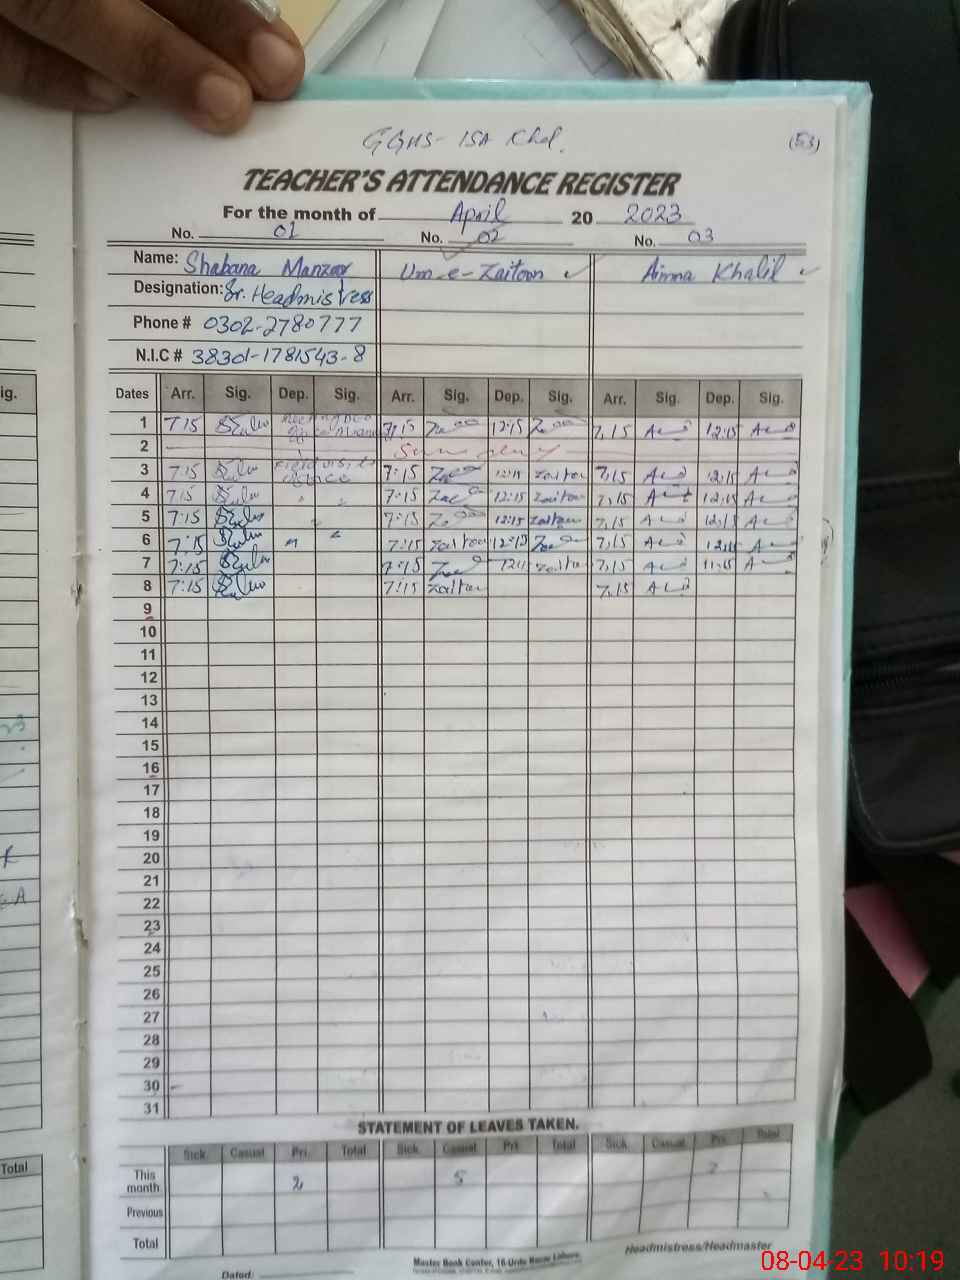 GGHS- ISA Khel.
(53)
TEACHER'S ATTENDANCE REGISTER
For the month of April 20 2023
No. 01 No. 02 No. 03
Name: Shabana Manzoor Um-e-Zaitoon Aimna Khalil
Designation: Sr. Headmistress
Phone # 0302-2780777
N.I.C # 38301-1781543-8
Dates Arr. Sig. Dep. Sig. Arr. Sig. Dep. Sig. Arr. Sig. Dep. Sig.
1 7 15 7:15 12:15 7,15 12:15
2 Sunday
3 7:15 7:15 12:15 Zaitoon 7,15 12,15
4 7:15 7:15 12:15 Zaitoon 7,15 12,15
5 7:15 7:15 12:15 Zaitoon 7,15 12,15
6 7:15 7:15 Zaitoon 12:15 7,15 12,15
7 7:15 7:15 Zaitoon 7,15 11,15
8 7:15 7:15 Zaitoon 7,15
9
10
11
12
13
14
15
16
17
18
19
20
21
22
23
24
25
26
27
28
29
30
31
STATEMENT OF LEAVES TAKEN.
Sick Casual Pri. Total Sick Casual Pri Total Sick Casual Pri. Total
This month 2 5 2
Previous
Total
Headmistress/Headmaster
Master Book Center, 16-Urdu Bazar Lahore.
Dated:
ig.
Total
08-04-23 10:19